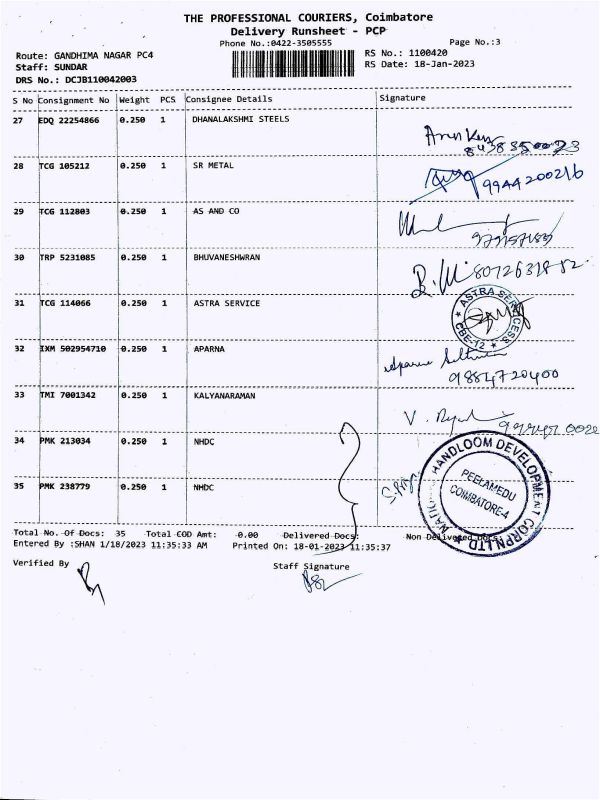 THE PROFESSIONAL COURIERS, Coimbatore
Delivery Runsheet - PCP
Phone No.:0422-3505555 Page No.:3
Route: GANDHIMA NAGAR PC4 RS No.: 1100420
Staff: SUNDAR RS Date: 18-Jan-2023
DRS No.: DCJB110042003
S No Consignment No Weight PCS Consignee Details Signature
27 EDQ 22254866 0.250 1 DHANALAKSHMI STEELS
28 TCG 105212 0.250 1 SR METAL
9944200216
29 TCG 112803 0.250 1 AS AND CO
30 TRP 5231085 0.250 1 BHUVANESHWRAN
31 TCG 114066 0.250 1 ASTRA SERVICE
ASTRA SERVICESS
CBE-12
32 IXM 502954710 0.250 1 APARNA
9884720400
33 TMI 7001342 0.250 1 KALYANARAMAN
34 PMK 213034 0.250 1 NHDC
HANDLOOM DEVELOPMENT CORPN.LTD
PEELAMEDU
COIMBATORE-4
35 PMK 238779 0.250 1 NHDC
Total No. Of Docs: 35 Total COD Amt: 0.00 Delivered Docs: Non Delivered Docs:
Entered By :SHAN 1/18/2023 11:35:33 AM Printed On: 18-01-2023 11:35:37
Verified By Staff Signature